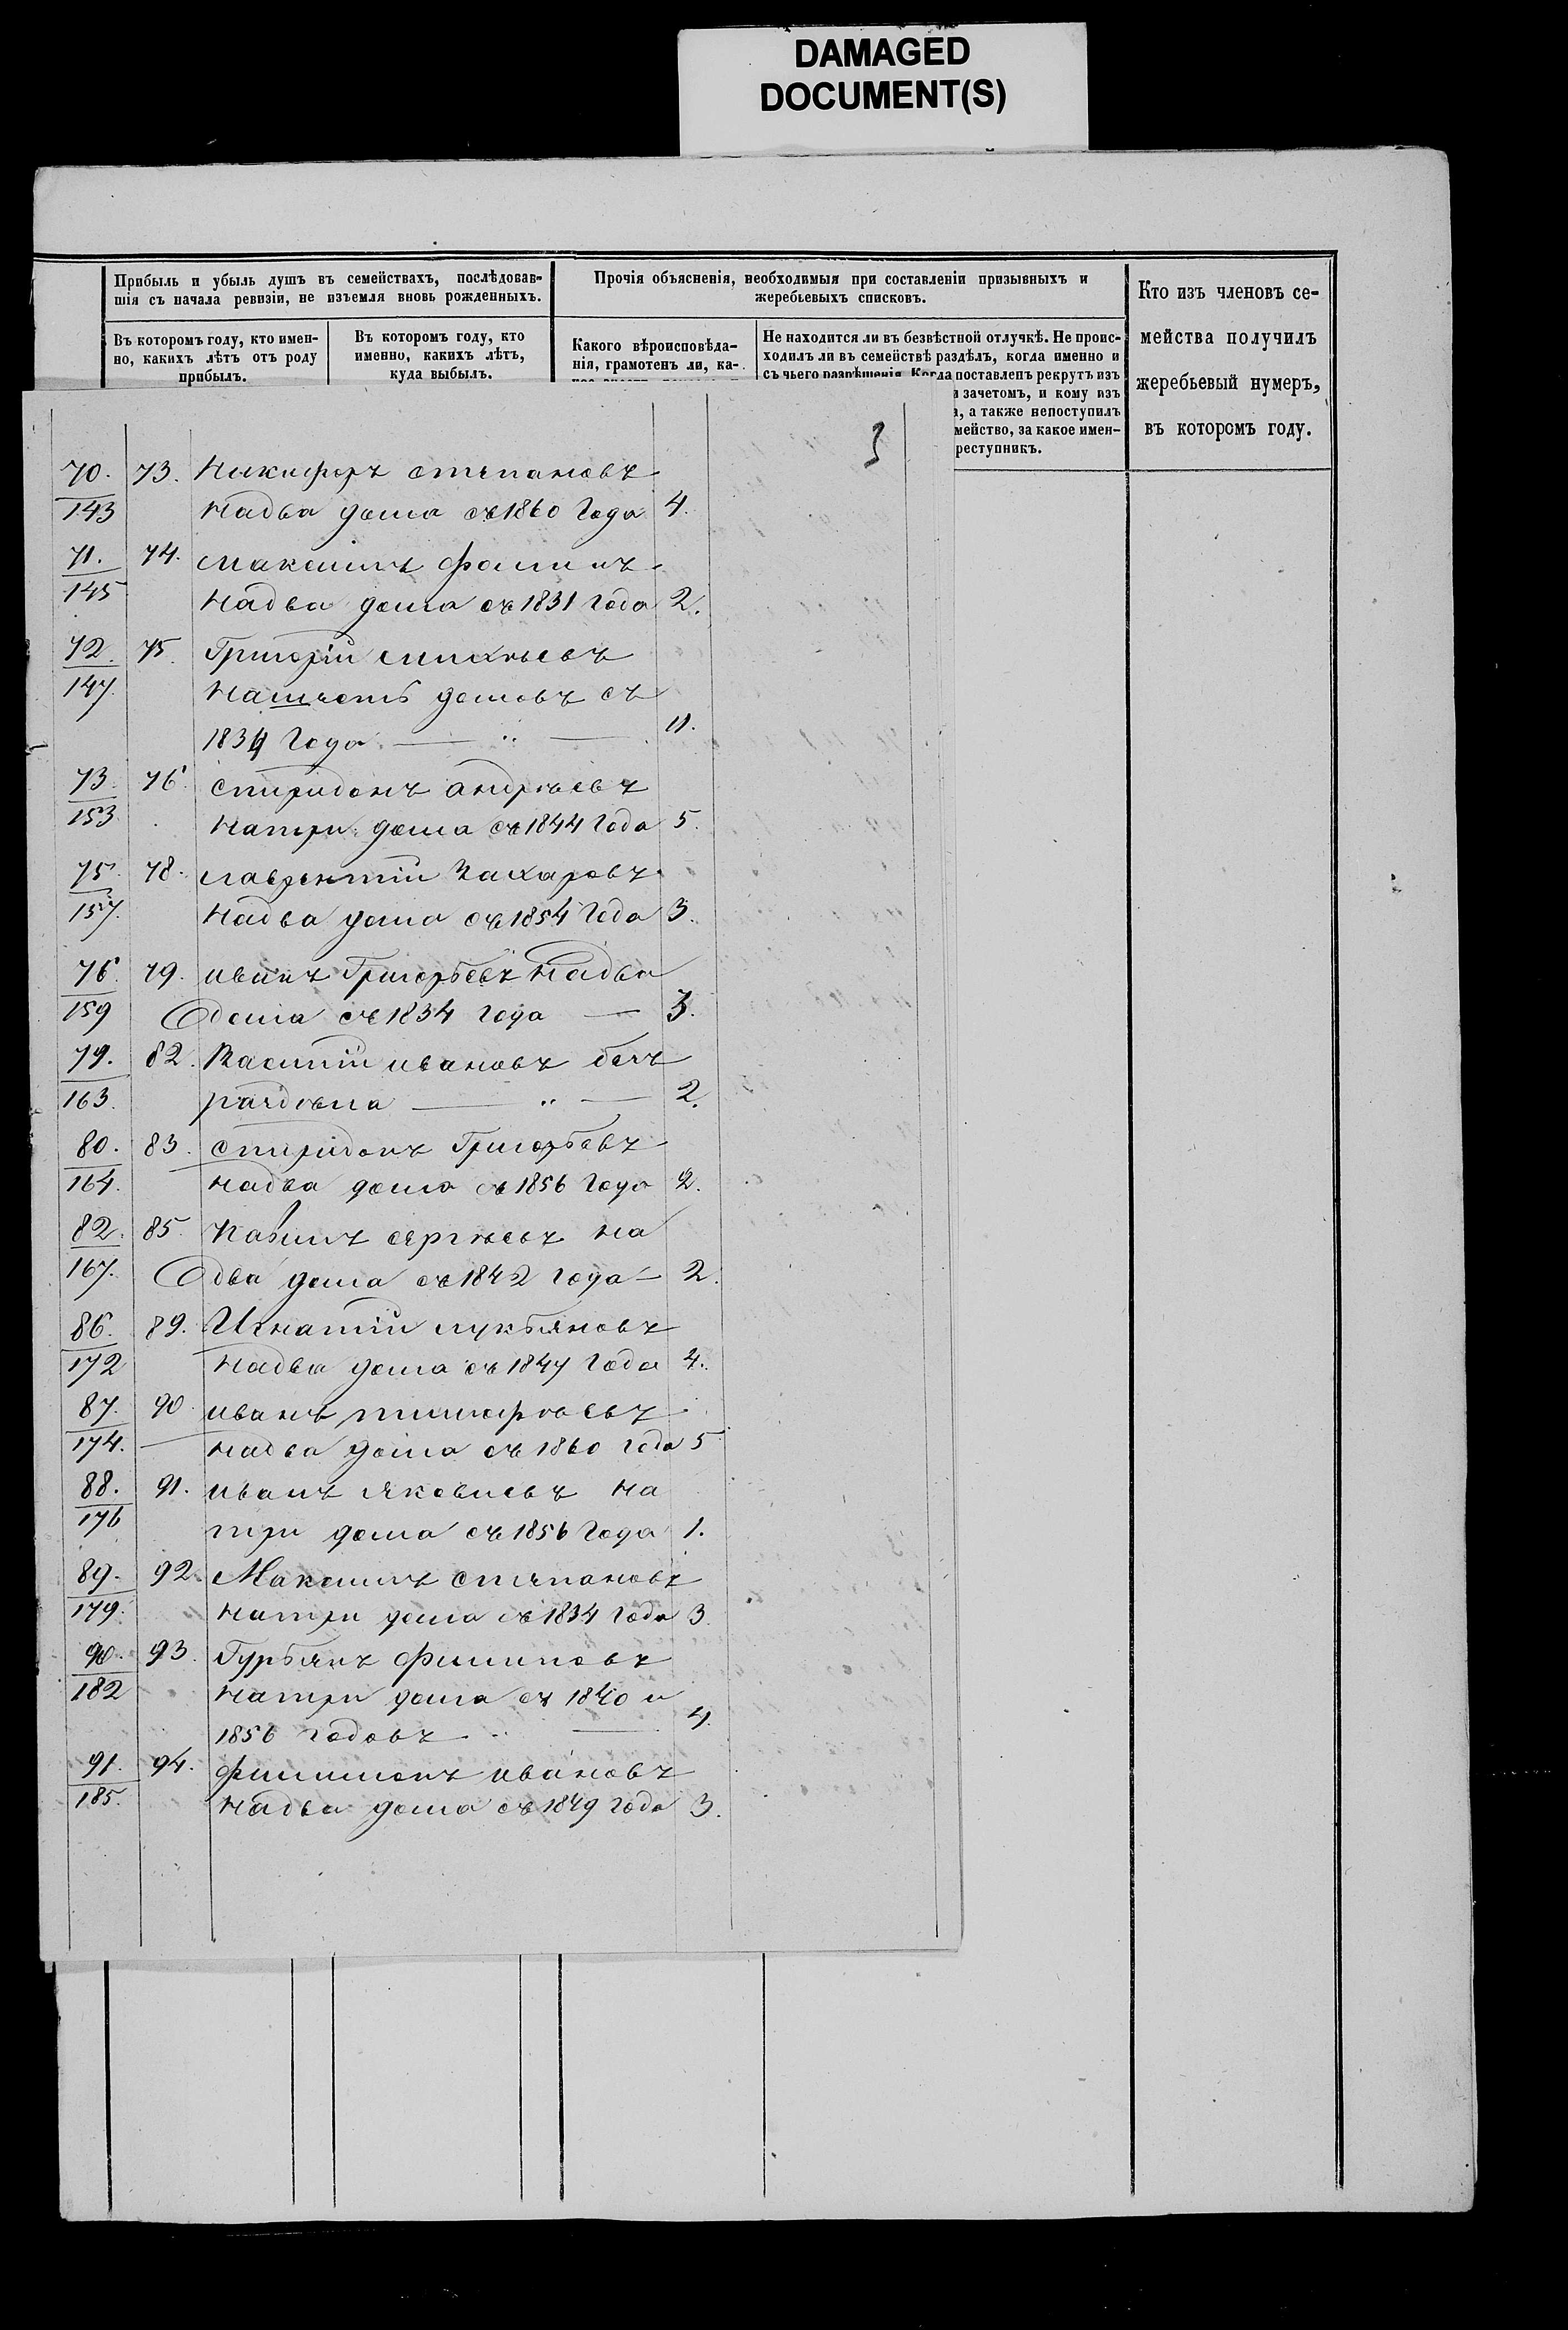 DAMAGED
DOCUMENT(S)
Прибыль и убыль душъ въ семействахъ, послѣдовав-
шія съ начала ревизіи, не изъемля вновь рожденныхъ.
Въ которомъ году, кто имен-
но, какихъ лѣтъ отъ роду
прибылъ.
Въ которомъ году, кто
именно, какихъ лѣтъ,
куда выбылъ.
Прочія объясненія, необходимыя при составленіи призывныхъ и
жеребьевыхъ списковъ.
Какого вѣроисповѣда-
нія, грамотенъ ли, ка-
Не находится ли въ безвѣстной отлучкѣ. Не проис-
ходилъ ли въ семействѣ раздѣлъ, когда именно и
съ чьего разрѣшенія. Когда поставленъ рекрутъ изъ
и зачетомъ, и кому изъ
, а также непоступилъ
мейство, за какое имен-
реступникъ.
Кто изъ членовъ се-
мейства получилъ
жеребьевый нумеръ,
въ которомъ году.
3
70. 73. Никифоръ степановъ
143 надва дома съ 1860 года 4.
71. 74. максимъ фоминъ
145 надва дома съ 1831 года 2.
72. 75. Григорій михѣевъ
147. нашесть домовъ съ
1834 года — " — 11.
73. 76. спиридонъ андрѣевъ
153 натри дома съ 1844 года 5.
75. 78. лаврентій Захаровъ
157. надва дома съ 1854 года 3.
76. 79. иванъ Григорьевъ надва
159 дома съ 1834 года — 3.
79. 82. Василій ивановъ безъ
163. раздѣла — " — 2.
80. 83. спиридонъ Григорьевъ
164. надва дома съ 1856 года 2.
82. 85. сергѣевъ на
167. два дома съ 1842 года — 2.
86. 89. Игнатій лукьяновъ
172 надва дома съ 1847 года 4.
87. 90. иванъ тимофѣевъ
174. надва дома съ 1860 года 5
88. 91. иванъ яковлевъ на
176 три дома съ 1856 года 1.
89. 92. Максимъ степановъ
179. натри дома съ 1834 года 3.
90. 93. Гурьянъ филиповъ
182 натри дома съ 1840 и
1856 годовъ — 4.
91. 94. филимонъ ивановъ
185. надва дома съ 1849 года 3.